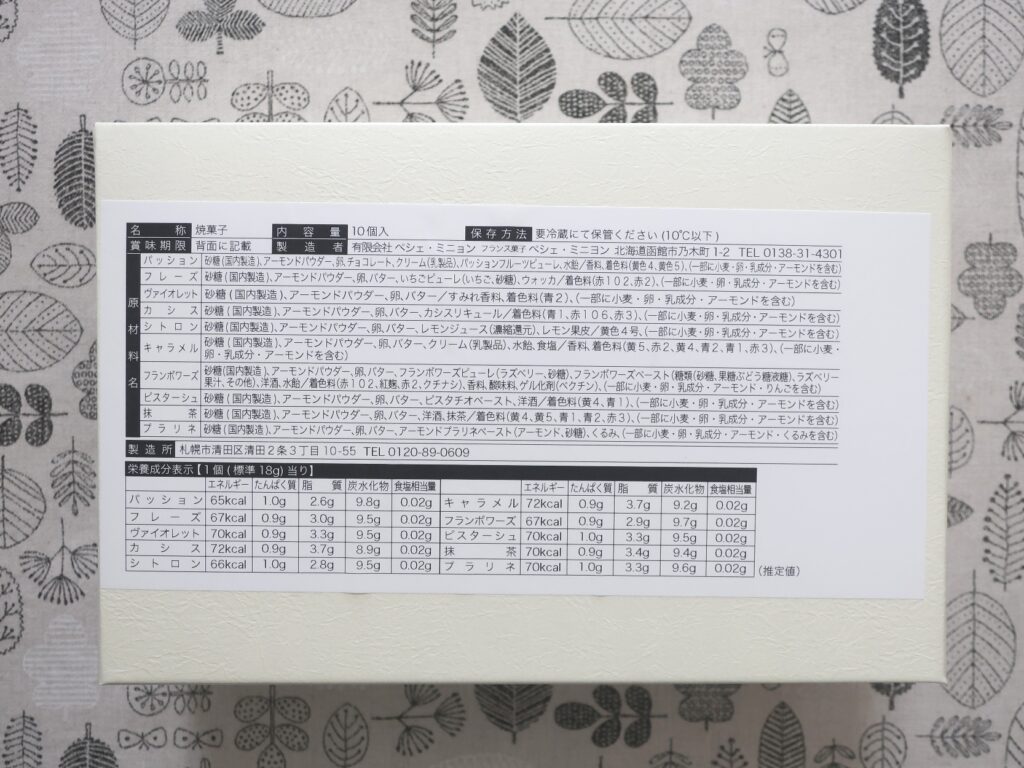 名称 焼菓子 内容量 10個入 保存方法 要冷蔵にて保管ください(10℃以下)
賞味期限 背面に記載 製造者 有限会社 ペシェ・ミニョン フランス菓子 ペシェ・ミニヨン 北海道函館市乃木町1-2 TEL 0138-31-4301
原材料名
パッション 砂糖(国内製造)、アーモンドパウダー、卵、チョコレート、クリーム(乳製品)、パッションフルーツピューレ、水飴/香料、着色料(黄色4、黄色5)、(一部に小麦・卵・乳成分・アーモンドを含む)
フレーズ 砂糖(国内製造)、アーモンドパウダー、卵、バター、いちごピューレ(いちご、砂糖)、ウォッカ/着色料(赤102、赤2)、(一部に小麦・卵・乳成分・アーモンドを含む)
ヴァイオレット 砂糖(国内製造)、アーモンドパウダー、卵、バター/すみれ香料、着色料(青2)、(一部に小麦・卵・乳成分・アーモンドを含む)
カシス 砂糖(国内製造)、アーモンドパウダー、卵、バター、カシスリキュール/着色料(青1、赤106、赤3)、(一部に小麦・卵・乳成分・アーモンドを含む)
シトロン 砂糖(国内製造)、アーモンドパウダー、卵、バター、レモンジュース(濃縮還元)、レモン果皮/黄色4号、(一部に小麦・卵・乳成分・アーモンドを含む)
キャラメル 砂糖(国内製造)、アーモンドパウダー、卵、バター、クリーム(乳製品)、水飴、食塩/香料、着色料(黄5、赤2、黄4、青2、青1、赤3)、(一部に小麦・
卵・乳成分・アーモンドを含む)
フランボワーズ 砂糖(国内製造)、アーモンドパウダー、卵、バター、フランボワーズピューレ(ラズベリー、砂糖)、フランボワーズペースト(糖類(砂糖、果糖ぶどう糖液糖)、ラズベリー
果汁、その他)、洋酒、水飴/着色料(赤102、紅麹、赤2、クチナシ)、香料、酸味料、ゲル化剤(ペクチン)、(一部に小麦・卵・乳成分・アーモンド・りんごを含む)
ピスターシュ 砂糖(国内製造)、アーモンドパウダー、卵、バター、ピスタチオペースト、洋酒/着色料(黄4、青1)、(一部に小麦・卵・乳成分・アーモンドを含む)
抹茶 砂糖(国内製造)、アーモンドパウダー、卵、バター、洋酒、抹茶/着色料(黄4、黄5、青1、青2、赤3)、(一部に小麦・卵・乳成分・アーモンドを含む)
プラリネ 砂糖(国内製造)、アーモンドパウダー、卵、バター、アーモンドプラリネペースト(アーモンド、砂糖)、くるみ、(一部に小麦・卵・乳成分・アーモンド・くるみを含む)
製造所 札幌市清田区清田2条3丁目10-55 TEL 0120-89-0609
栄養成分表示【1個(標準18g)当り】
エネルギー たんぱく質 脂質 炭水化物 食塩相当量 エネルギー たんぱく質 脂質 炭水化物 食塩相当量
パッション 65kcal 1.0g 2.6g 9.8g 0.02g キャラメル 72kcal 0.9g 3.7g 9.2g 0.02g
フレーズ 67kcal 0.9g 3.0g 9.5g 0.02g フランボワーズ 67kcal 0.9g 2.9g 9.7g 0.02g
ヴァイオレット 70kcal 0.9g 3.3g 9.5g 0.02g ピスターシュ 70kcal 1.0g 3.3g 9.5g 0.02g
カシス 72kcal 0.9g 3.7g 8.9g 0.02g 抹茶 70kcal 0.9g 3.4g 9.4g 0.02g
シトロン 66kcal 1.0g 2.8g 9.5g 0.02g プラリネ 70kcal 1.0g 3.3g 9.6g 0.02g (推定値)